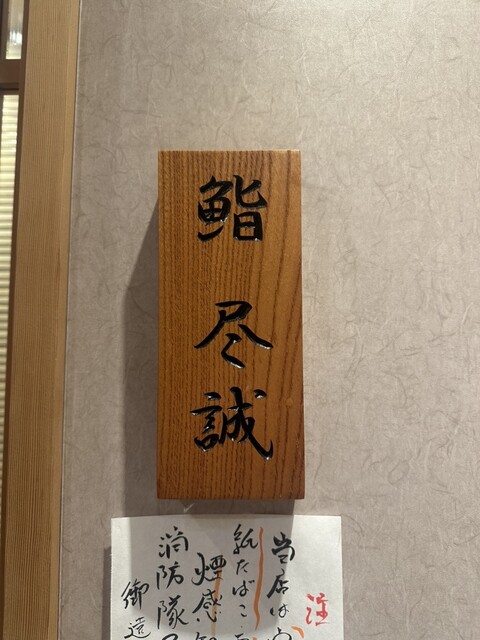 鮨 尽誠
注
当店は
紙たばこ
煙感知
消防隊
御遠